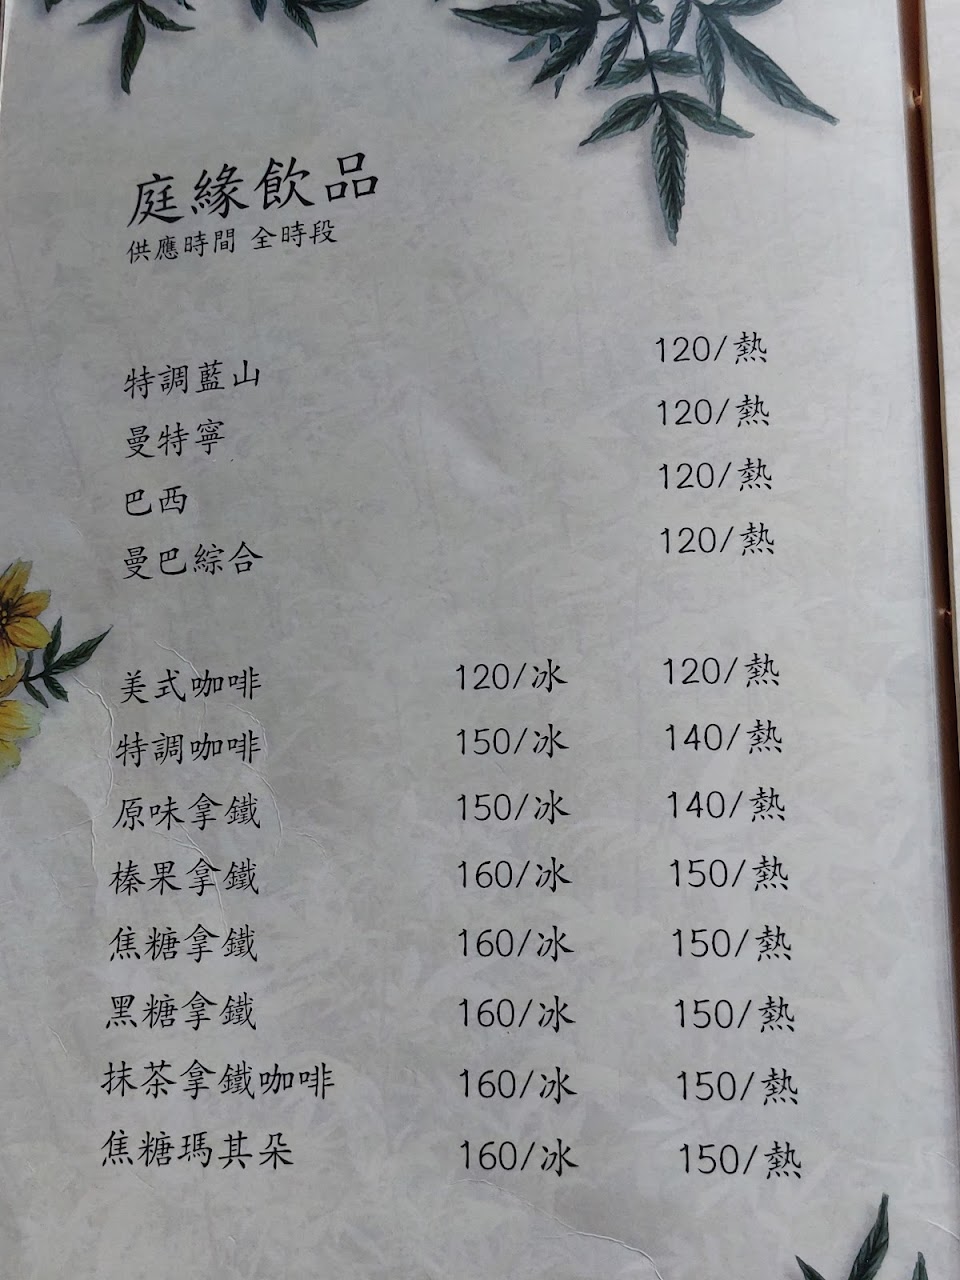 庭緣飲品
供應時間 全時段
特調藍山 120/熱
曼特寧 120/熱
巴西 120/熱
曼巴綜合 120/熱
美式咖啡 120/冰 120/熱
特調咖啡 150/冰 140/熱
原味拿鐵 150/冰 140/熱
榛果拿鐵 160/冰 150/熱
焦糖拿鐵 160/冰 150/熱
黑糖拿鐵 160/冰 150/熱
抹茶拿鐵咖啡 160/冰 150/熱
焦糖瑪其朵 160/冰 150/熱